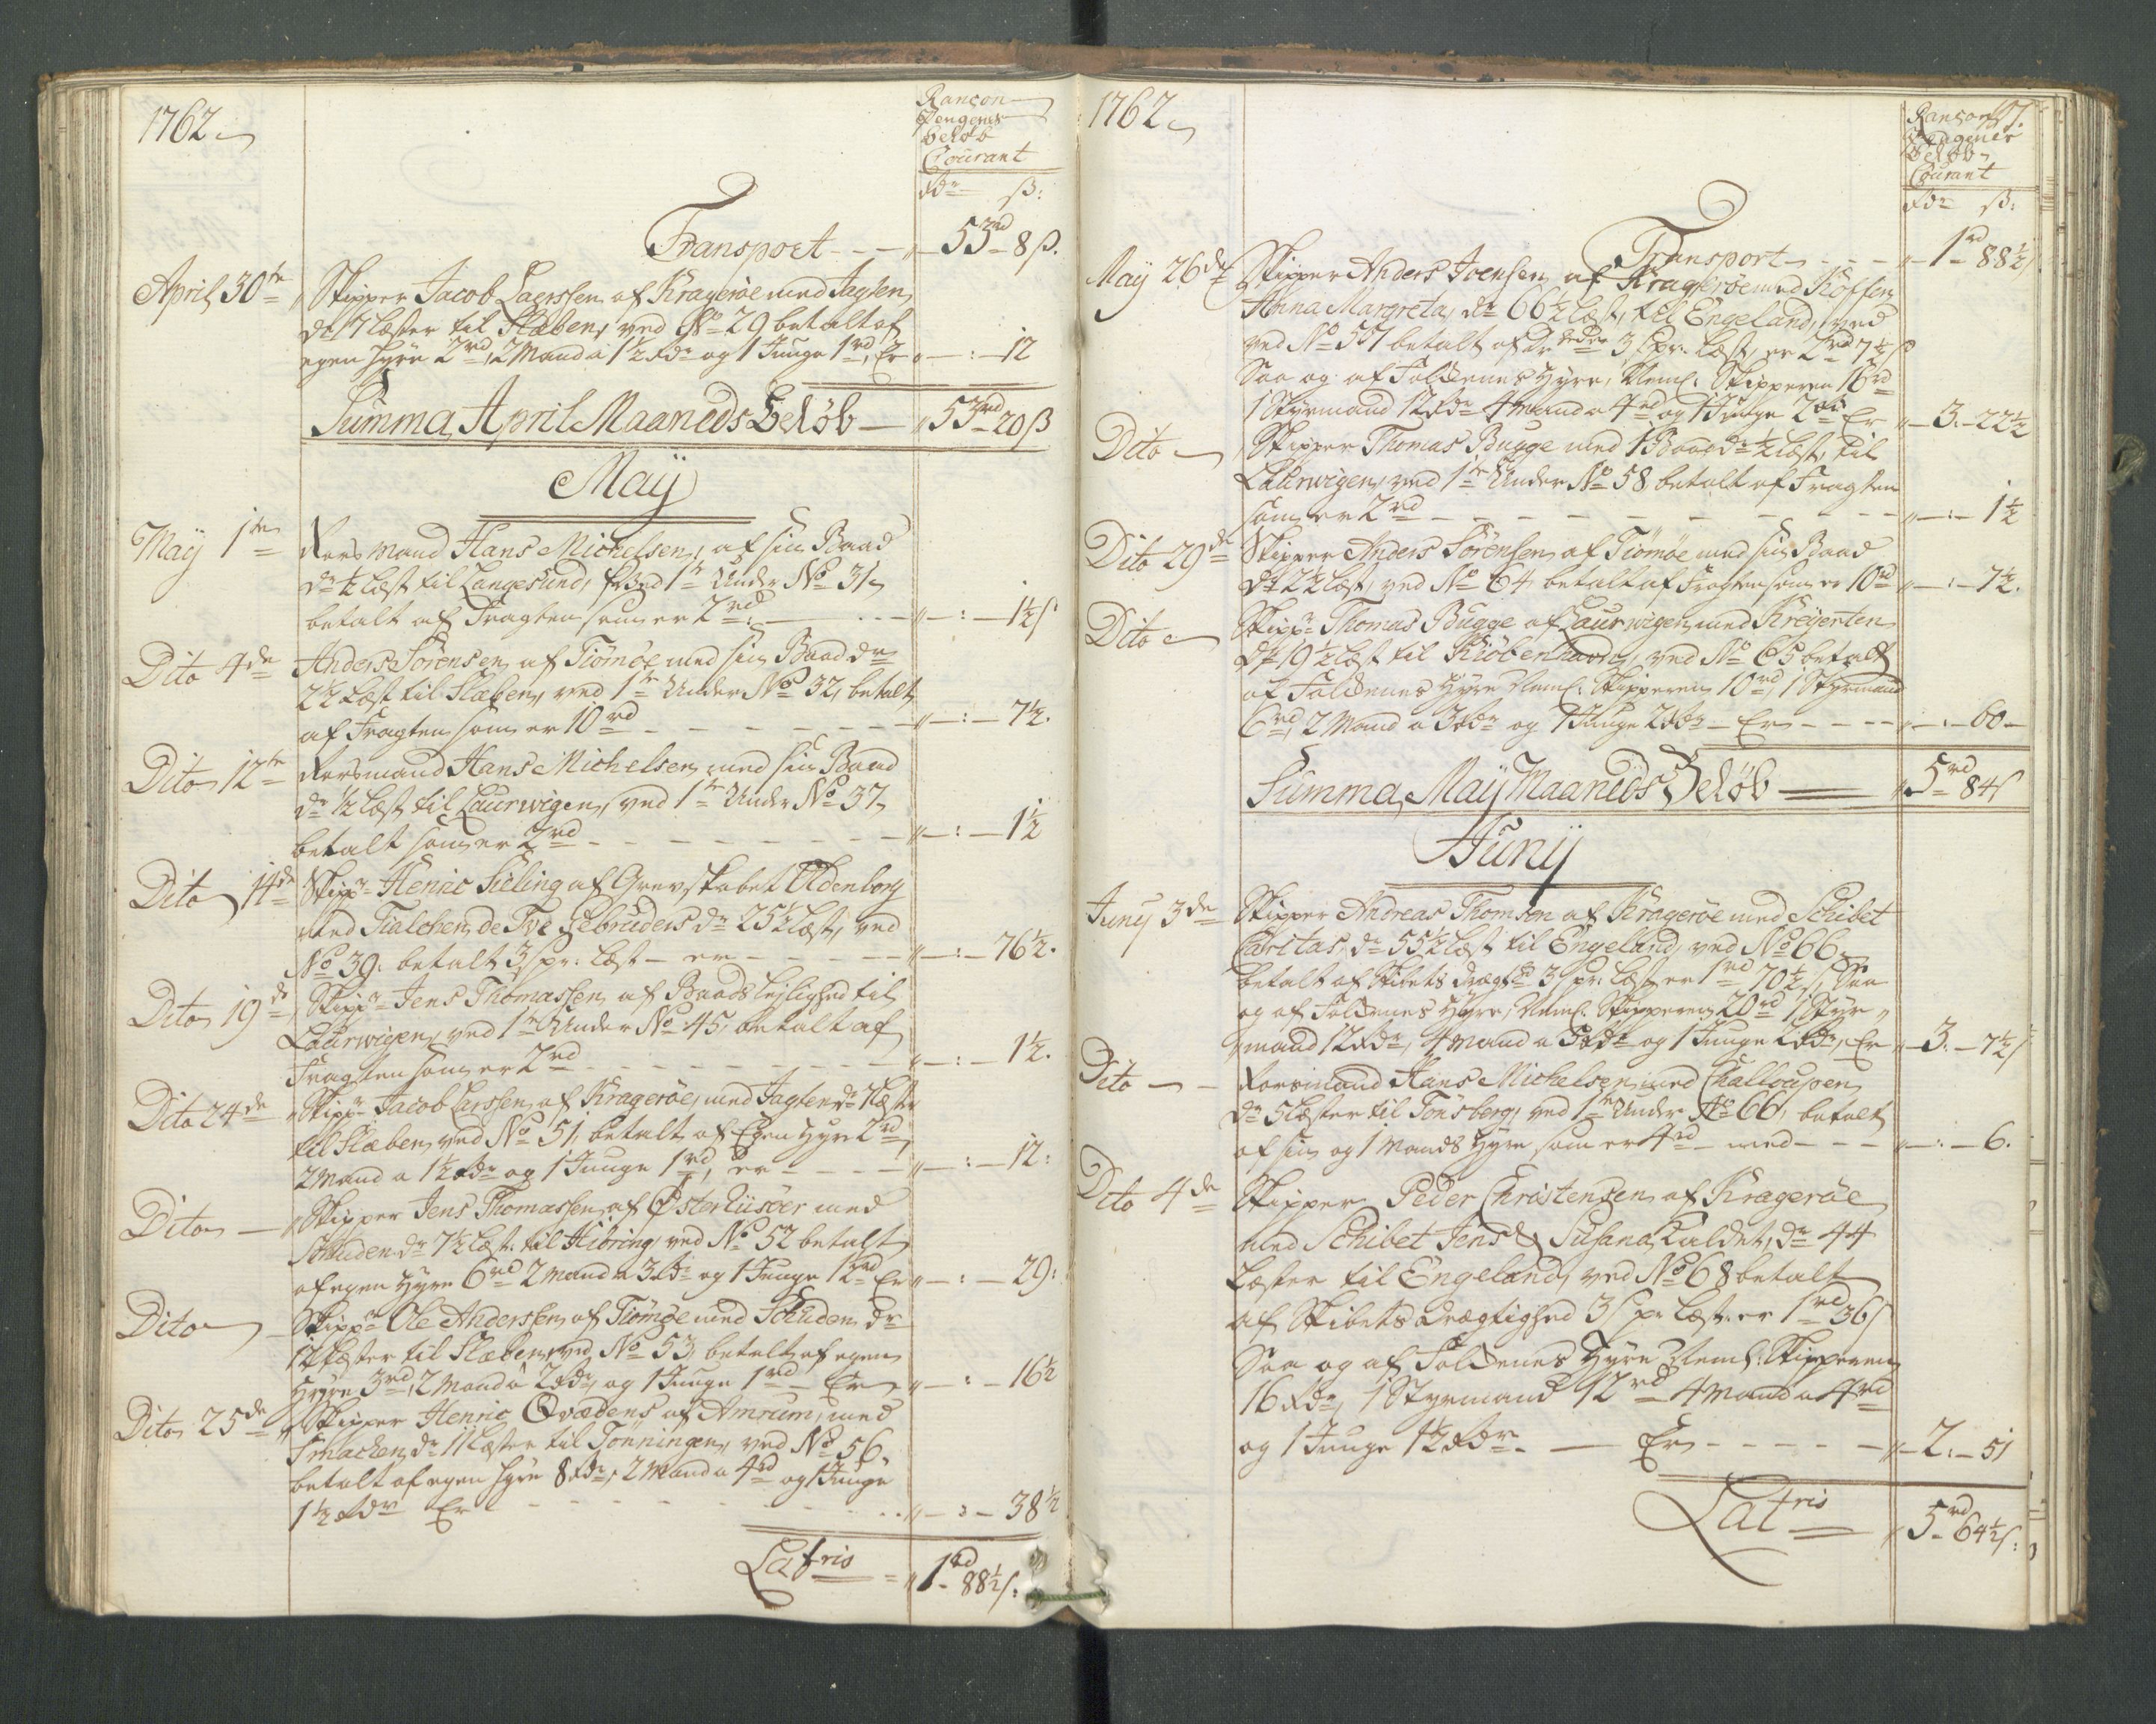 1762
Rançon
Pengenes
Beløb
Courant
Rdr ß:
Transport - - " 53rd 8 ß.
April 30te Skipper Jacob Larssen af Kragerøe med Jagten
dr 7 læster til Slæben, ved No 29 betalt af
egen hyre 2rd, 2 Mand a 1½ Rdr og 1 Junge 1rd, Er " - : - 12
Summa April Maaneds Beløb — " 53rd 20 ß
Maij
Maij 1te Rorsmand Hans Michelsen, af sin Baad
dr ½ læst til Langesund, ved 1te Under No 31
betalt af Fragten som er 2rd. - - - " - : - 1½ ß
Dito 4de Anders Sørensen af Tiømøe med sin Baad dr
2½ læst til Slæben, ved 1te Under No 32, betalt
af Fragten som er 10rd - - - - - " - : - 7½.
Dito 12te Rorsmand Hans Michelsen med sin Baad
dr ½ læst til Laurwigen, ved 1te Under No 37
betalt som er 2rd - - - - - " - : - 1½
Dito 14de Skippr Henric Sieling af Grevskabet Oldenborg
med Tialchen de Tve Gebruders dr 25½ læst, ved
No 39. betalt 3 ß pr. læst - er - - - - " - : - 76½.
Dito 19de Skippr Jens Thomassen af Baads lejlighed til
Laurwigen, ved 1te Under No 45, betalt af
Fragten som er 2rd - - - - - " - : - 1½.
Dito 24de Skippr Jacob Larssen af Kragerøe, med Jagten dr 7 læster
til Slæben, ved No 51, betalt af Egen hyre 2rd,
2 Mand a 1½ Rdr og 1 Junge 1rd, er - - - " - : - 12:
Dito — Skipper Jens Thomassen af Øster Riisøer med
Schuden dr 7½ læst: til Hiöring, ved No 52 betalt
af egen Hyre 6rd 2 Mand a 3 Rdr og 1 Junge 1½rd Er " - : - 29:
Dito — Skippr Ole Anderssen af Tiømøe med Schuden dr
12 læster til Slæben, ved No 53, betalt af egen
Hyre 3rd, 2 Mand a 2 Rdr, og 1 Junge 1rd - Er " - : - 16½
Dito 25de Skipper Henric Qvædens af Amrum, med
Smacken dr 11 læster til Tønningen, ved No 56.
betalt af egen hyre 8 Rdr, 2 Mand a 4rd og 1 Junge
1½ Rdr Er - - - - - " - : - 38½
Latris = " 1rd 88½ ß:
1762
Rançon
Pengenes
Beløb
Courant
Rdr ß:
Transport - - - " 1rd 88½ ß
May 26de Skipper Anders Joensen af Kragerøe med Koffen
Anna Margreta, dr 66½ læst, til Engeland, ved
ved No 57 betalt af 3 ß pr. læst, er 2rd 7½ ß
Saa og af Folckenes Hyre, Neml: Skipperen 16rd
1 Styrmand 12 Rdr 4 Mand a 4rd og 1 Junge 2rd Er " - 3. - 22½
Dito — Skipper Thomas Bugge med 1 Baad dr ½ læst, til
Laurwigen, ved 1te Under No 58 betalt af Fragten
som er 2rd - - - - - " - : - 1½
Dito 29de Skipper Anders Sørensen af Tiømøe med sin Baad
dr 2½ læst, ved No 64 betalt af Fragten som er 10rd " - : - 7½.
Dito — Skippr Thomas Bugge af Laurwigen med Kreyerten
dr 19½ læst til Kiøbenhavn, ved No 65 betalt
af Folckenes Hyre Neml: Skipperen 10rd, 1 Styrmand
6rd, 2 Mand a 3 Rdr og 1 Junge 2 Rdr - Er - - - " - : - 60 -
Summa May Maaneds Beløb — " 5rd 84 ß
Junij
Junij 3de Skipper Andreas Thomson af Kragerøe med Schibet
Caritas, dr 55½ læst til Engeland, ved No 66
betalt af Skibets drægt: 3 ß pr. læst er 1rd 70½ ß, Saa
og af Folckenes Hyre, Neml: Skipperen 20rd, 1 Styr-
mand 12 Rdr, 4 Mand a 5 Rdr og 1 Junge 2 Rdr, Er " - 3. - 7½ ß
Dito — Rorsmand Hans Michelsen med Challoupen
dr 5 læster til Tønsberg, ved 1te Under No 66, betalt
af sin og 1 Mands Hyre som er 4rd - med - - - " - : - 6.
Dito 4de Skipper Peder Christensen af Kragerøe
med Schibet Jens & Susana Kaldet, dr 44
Læster til Engeland, ved No 68 betalt
af Skibets drægtighed 3 ß pr læst. er 1rd 36 ß
Saa og af Folckenes Hyre Neml: Skipperen
16 Rdr, 1 Styrmand 12rd 4 Mand a 4rd
og 1 Junge 1½ Rdr. — Er - - - - - " - 2. - 51
Latris " 5rd 64½ ß: